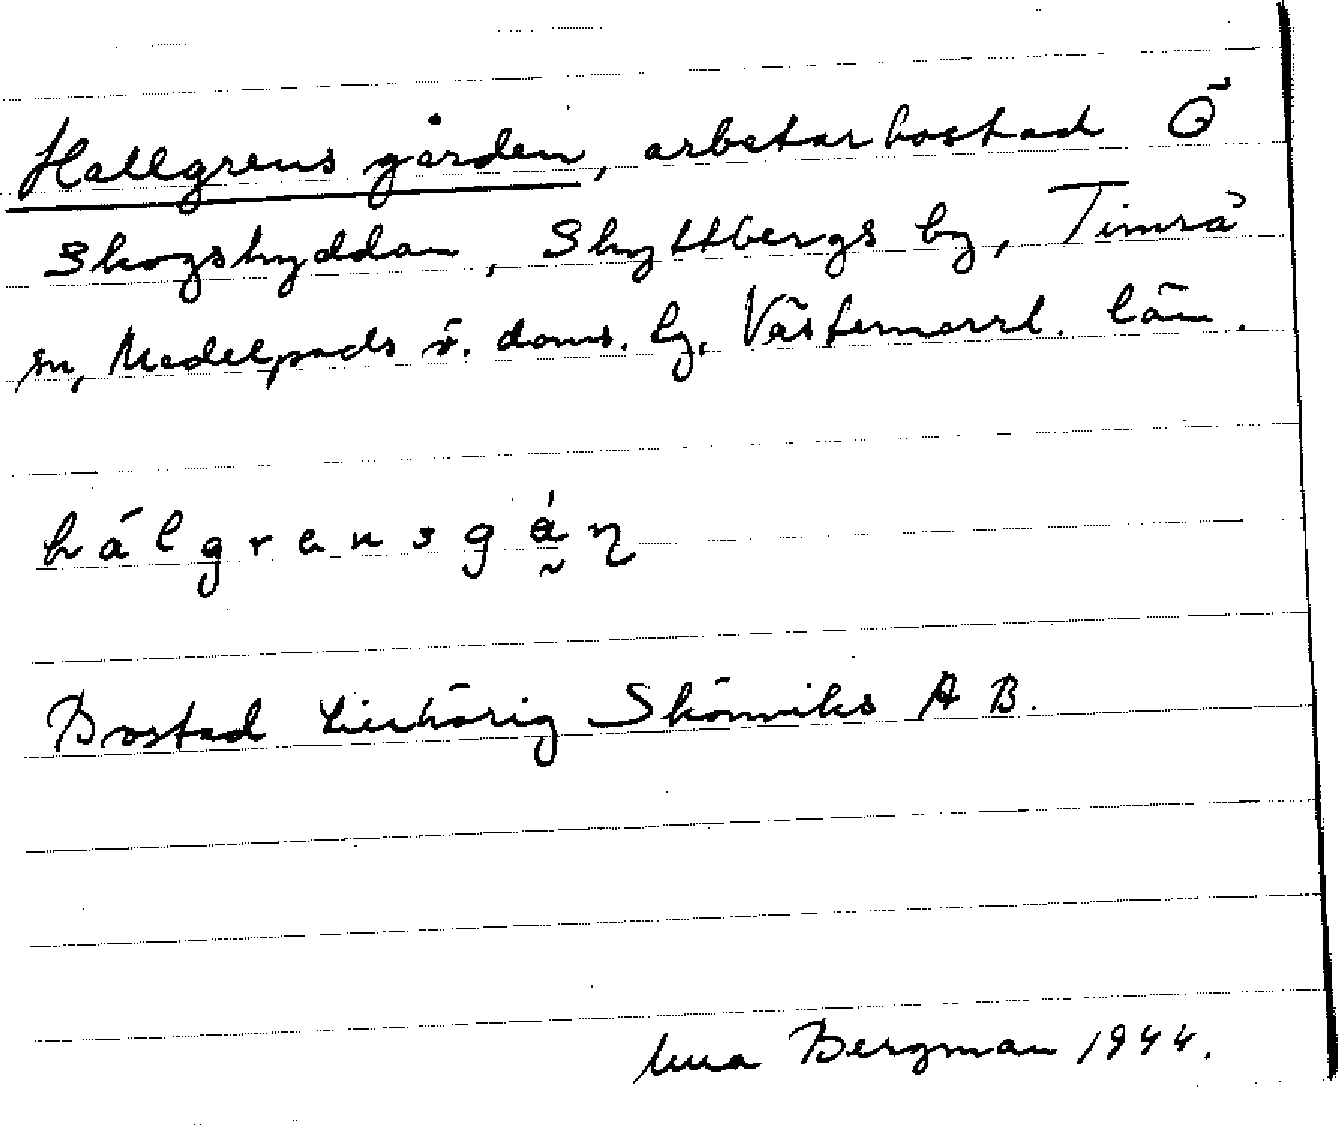 Hallgrens gården, arbetarbostad Ö
Skogshyddan, Skyttbergs by, Timrå
sn, Medelpads ö. doms. lg, Västernorrl. län.
hálgrensgá̰ɳ
Bostad tillhörig Skönviks A B.
Bergman 1944.